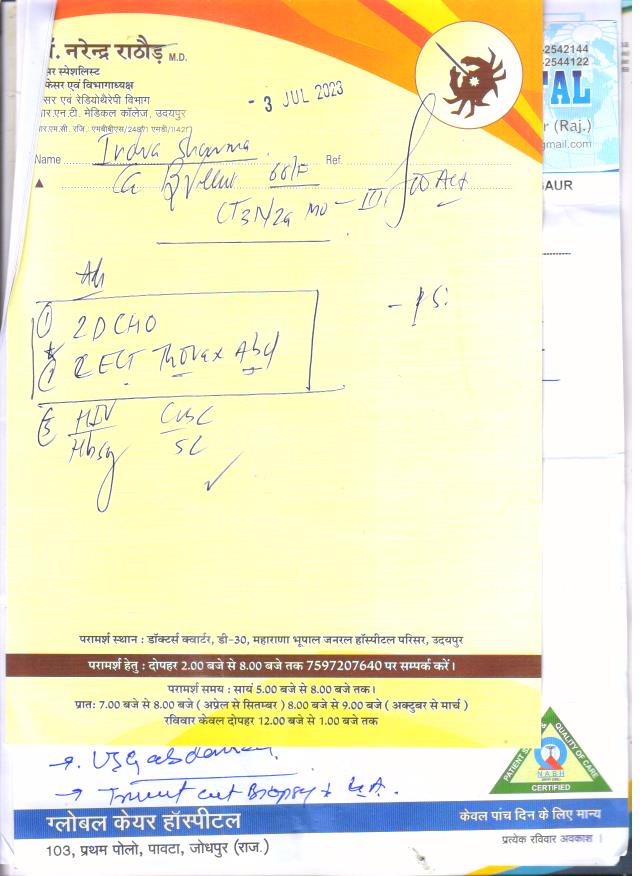 . नरेन्द्र राठौड़ M.D.
सर स्पेशलिस्ट
फेसर एवं विभागाध्यक्ष
सर एवं रेडियोथैरेपी विभाग
आर.एन.टी. मेडिकल कॉलेज, उदयपुर
- 3 JUL 2023
-2542144
-2544122
TAL
r (Raj.)
gmail.com
GAUR
Name Indra Sharma Ref.
Ca 66/F
CT3N2a M0 - III
Adv
① 2D CHO
CECT Thorax Abd
③ HIV CBC
HbSag SC
परामर्श स्थान : डॉक्टर्स क्वार्टर, डी-30, महाराणा भूपाल जनरल हॉस्पीटल परिसर, उदयपुर
परामर्श हेतु : दोपहर 2.00 बजे से 8.00 बजे तक 7597207640 पर सम्पर्क करें।
परामर्श समय : सायं 5.00 बजे से 8.00 बजे तक।
प्रातः 7.00 बजे से 8.00 बजे ( अप्रेल से सितम्बर ) 8.00 बजे से 9.00 बजे ( अक्टुबर से मार्च )
रविवार केवल दोपहर 12.00 बजे से 1.00 बजे तक
→ USG abdomen
→ Trucut Biopsy
QUALITY OF CARE
NABH
CERTIFIED
ग्लोबल केयर हॉस्पीटल
केवल पांच दिन के लिए मान्य
103, प्रथम पोलो, पावटा, जोधपुर (राज.)
प्रत्येक रविवार अवकाश ।